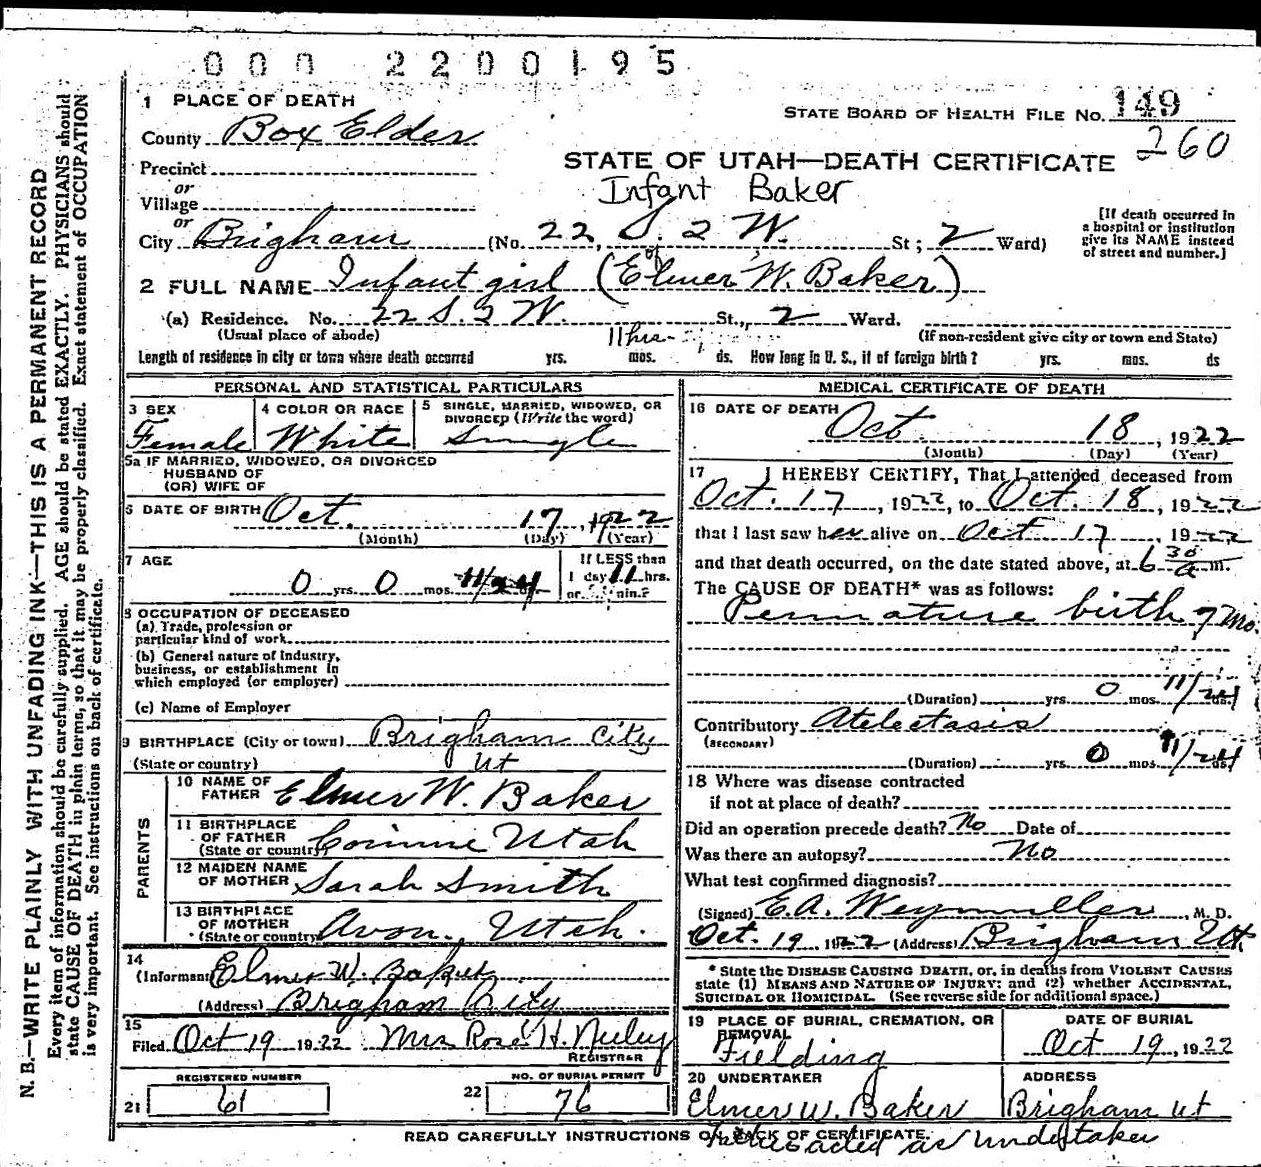 000 2200195
1 PLACE OF DEATH
STATE BOARD OF HEALTH FILE No. 149
County Box Elder
260
STATE OF UTAH—DEATH CERTIFICATE
Precinct
or
Infant Baker
Village
or
City Brigham (No. 22, S. 2 W. St; 2 Ward)
[If death occurred in
a hospital or institution
give its NAME instead
of street and number.]
2 FULL NAME Infant girl of (Elmer W. Baker)
(a) Residence. No. 22 S. 2 W. St., 2 Ward.
(Usual place of abode)
(If non-resident give city or town and State)
11 hrs
Length of residence in city or town where death occurred yrs. mos. ds. How long in U. S., if of foreign birth? yrs. mos. ds
PERSONAL AND STATISTICAL PARTICULARS
3 SEX
Female
4 COLOR OR RACE
White
5 SINGLE, MARRIED, WIDOWED, OR
DIVORCED (Write the word)
Single
5a IF MARRIED, WIDOWED, OR DIVORCED
HUSBAND OF
(OR) WIFE OF
6 DATE OF BIRTH Oct. 17, 1922
(Month) (Day) (Year)
7 AGE
0 yrs. 0 mos. 11/24 ds.
If LESS than
1 day 11 hrs.
or min.?
8 OCCUPATION OF DECEASED
(a) Trade, profession or
particular kind of work
(b) General nature of Industry,
business, or establishment in
which employed (or employer)
(c) Name of Employer
9 BIRTHPLACE (City or town) Brigham City
(State or country) Ut
PARENTS
10 NAME OF
FATHER Elmer W. Baker
11 BIRTHPLACE
OF FATHER
(State or country) Corinne Utah
12 MAIDEN NAME
OF MOTHER Sarah Smith
13 BIRTHPLACE
OF MOTHER
(State or country) Avon, Utah.
14
(Informant Elmer W. Baker
(Address) Brigham City
15
Filed Oct 19 1922 Mrs Rose H. Neeley
REGISTRAR
REGISTERED NUMBER
21 61
NO. OF BURIAL PERMIT
22 76
MEDICAL CERTIFICATE OF DEATH
16 DATE OF DEATH Oct 18, 1922
(Month) (Day) (Year)
17 I HEREBY CERTIFY, That I attended deceased from
Oct. 17, 1922, to Oct. 18, 1922
that I last saw her alive on Oct 17, 1922
and that death occurred, on the date stated above, at 6 30 a m.
The CAUSE OF DEATH* was as follows:
Pemature birth 7 mo.
(Duration) yrs. 0 mos. 11/24 ds.
Contributory Atelectasis
(SECONDARY)
(Duration) yrs. 0 mos. 11/24 ds.
18 Where was disease contracted
if not at place of death?
Did an operation precede death? No Date of
Was there an autopsy? No
What test confirmed diagnosis?
(Signed) E.A. Weymuller, M. D.
Oct. 19 1922 (Address) Brigham Ut.
* State the DISEASE CAUSING DEATH, or, in deaths from VIOLENT CAUSES
state (1) MEANS AND NATURE OF INJURY; and (2) whether ACCIDENTAL,
SUICIDAL or HOMICIDAL. (See reverse side for additional space.)
19 PLACE OF BURIAL, CREMATION, OR
REMOVAL
Fielding
DATE OF BURIAL
Oct 19, 1922
20 UNDERTAKER
Elmer W. Baker
ADDRESS
Brigham Ut
READ CAREFULLY INSTRUCTIONS ON BACK OF CERTIFICATE.
Father acted as Undertaker
N. B.—WRITE PLAINLY WITH UNFADING INK—THIS IS A PERMANENT RECORD
Every item of information should be carefully supplied. AGE should be stated EXACTLY. PHYSICIANS should
state CAUSE OF DEATH in plain terms, so that it may be properly classified. Exact statement of OCCUPATION
is very important. See instructions on back of certificate.